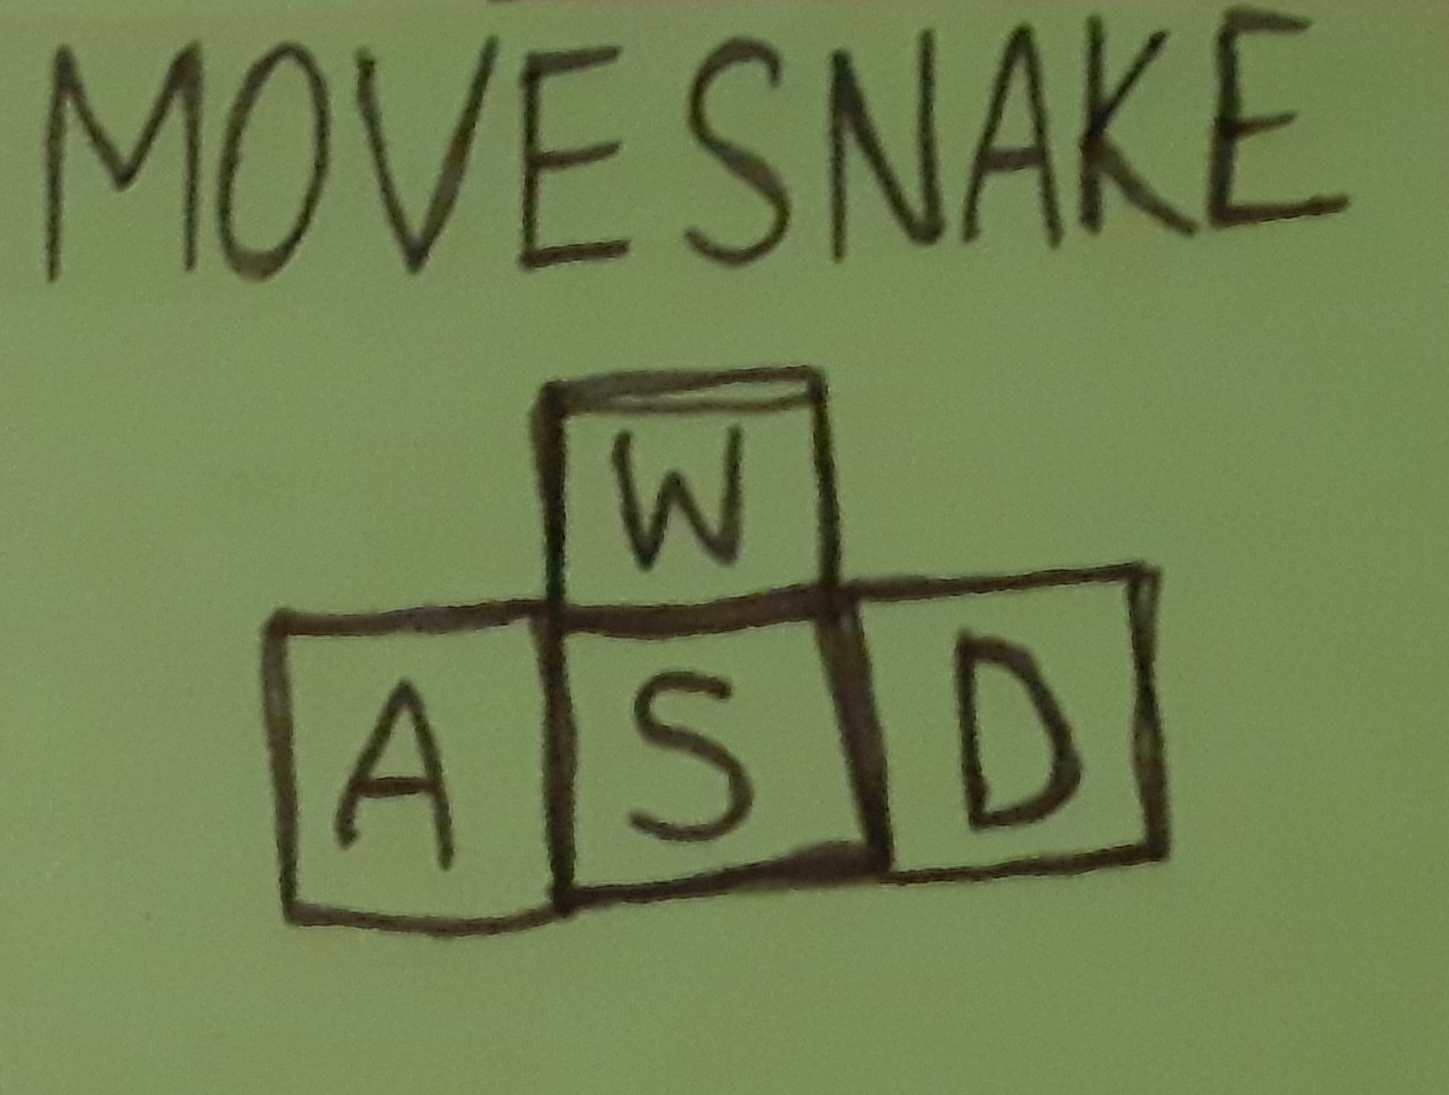 MOVE SNAKE
W
A S D